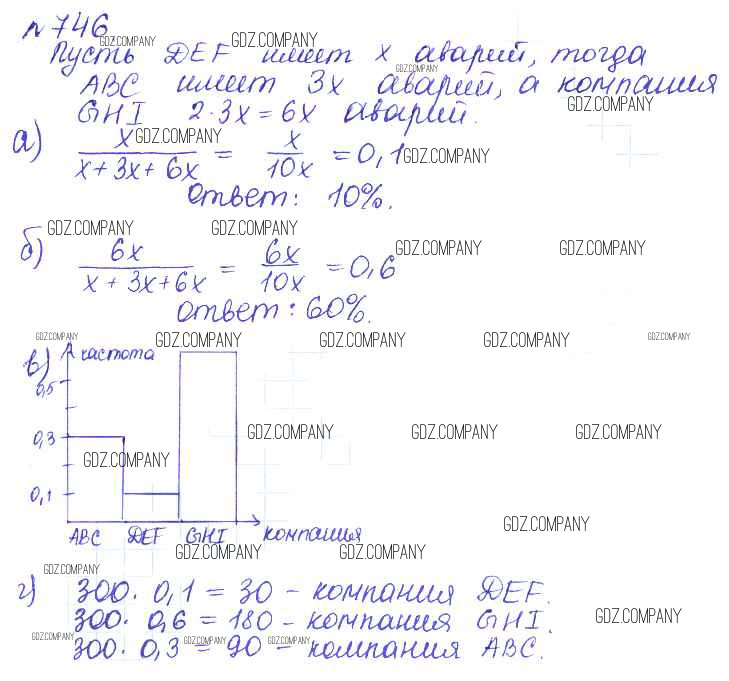 №746
GDZ.COMPANY GDZ.COMPANY
Пусть DEF имеет x аварий, тогда
GDZ.COMPANY
ABC имеет 3x аварий, а компания
GDZ.COMPANY
GHI 2·3x = 6x аварий.
а) x/(x+3x+6x) = x/10x = 0,1
GDZ.COMPANY GDZ.COMPANY
Ответ: 10%.
GDZ.COMPANY GDZ.COMPANY
б) 6x/(x+3x+6x) = 6x/10x = 0,6
GDZ.COMPANY GDZ.COMPANY
Ответ: 60%.
GDZ.COMPANY GDZ.COMPANY GDZ.COMPANY GDZ.COMPANY GDZ.COMPANY
в) частота
0,5
0,3
GDZ.COMPANY GDZ.COMPANY GDZ.COMPANY
GDZ.COMPANY
0,1
GDZ.COMPANY
ABC DEF GHI компания
GDZ.COMPANY GDZ.COMPANY
GDZ.COMPANY
г) 300· 0,1 = 30 – компания DEF.
300· 0,6 = 180 – компания GHI.
GDZ.COMPANY
300· 0,3 = 90 – компания ABC.
GDZ.COMPANY GDZ.COMPANY GDZ.COMPANY